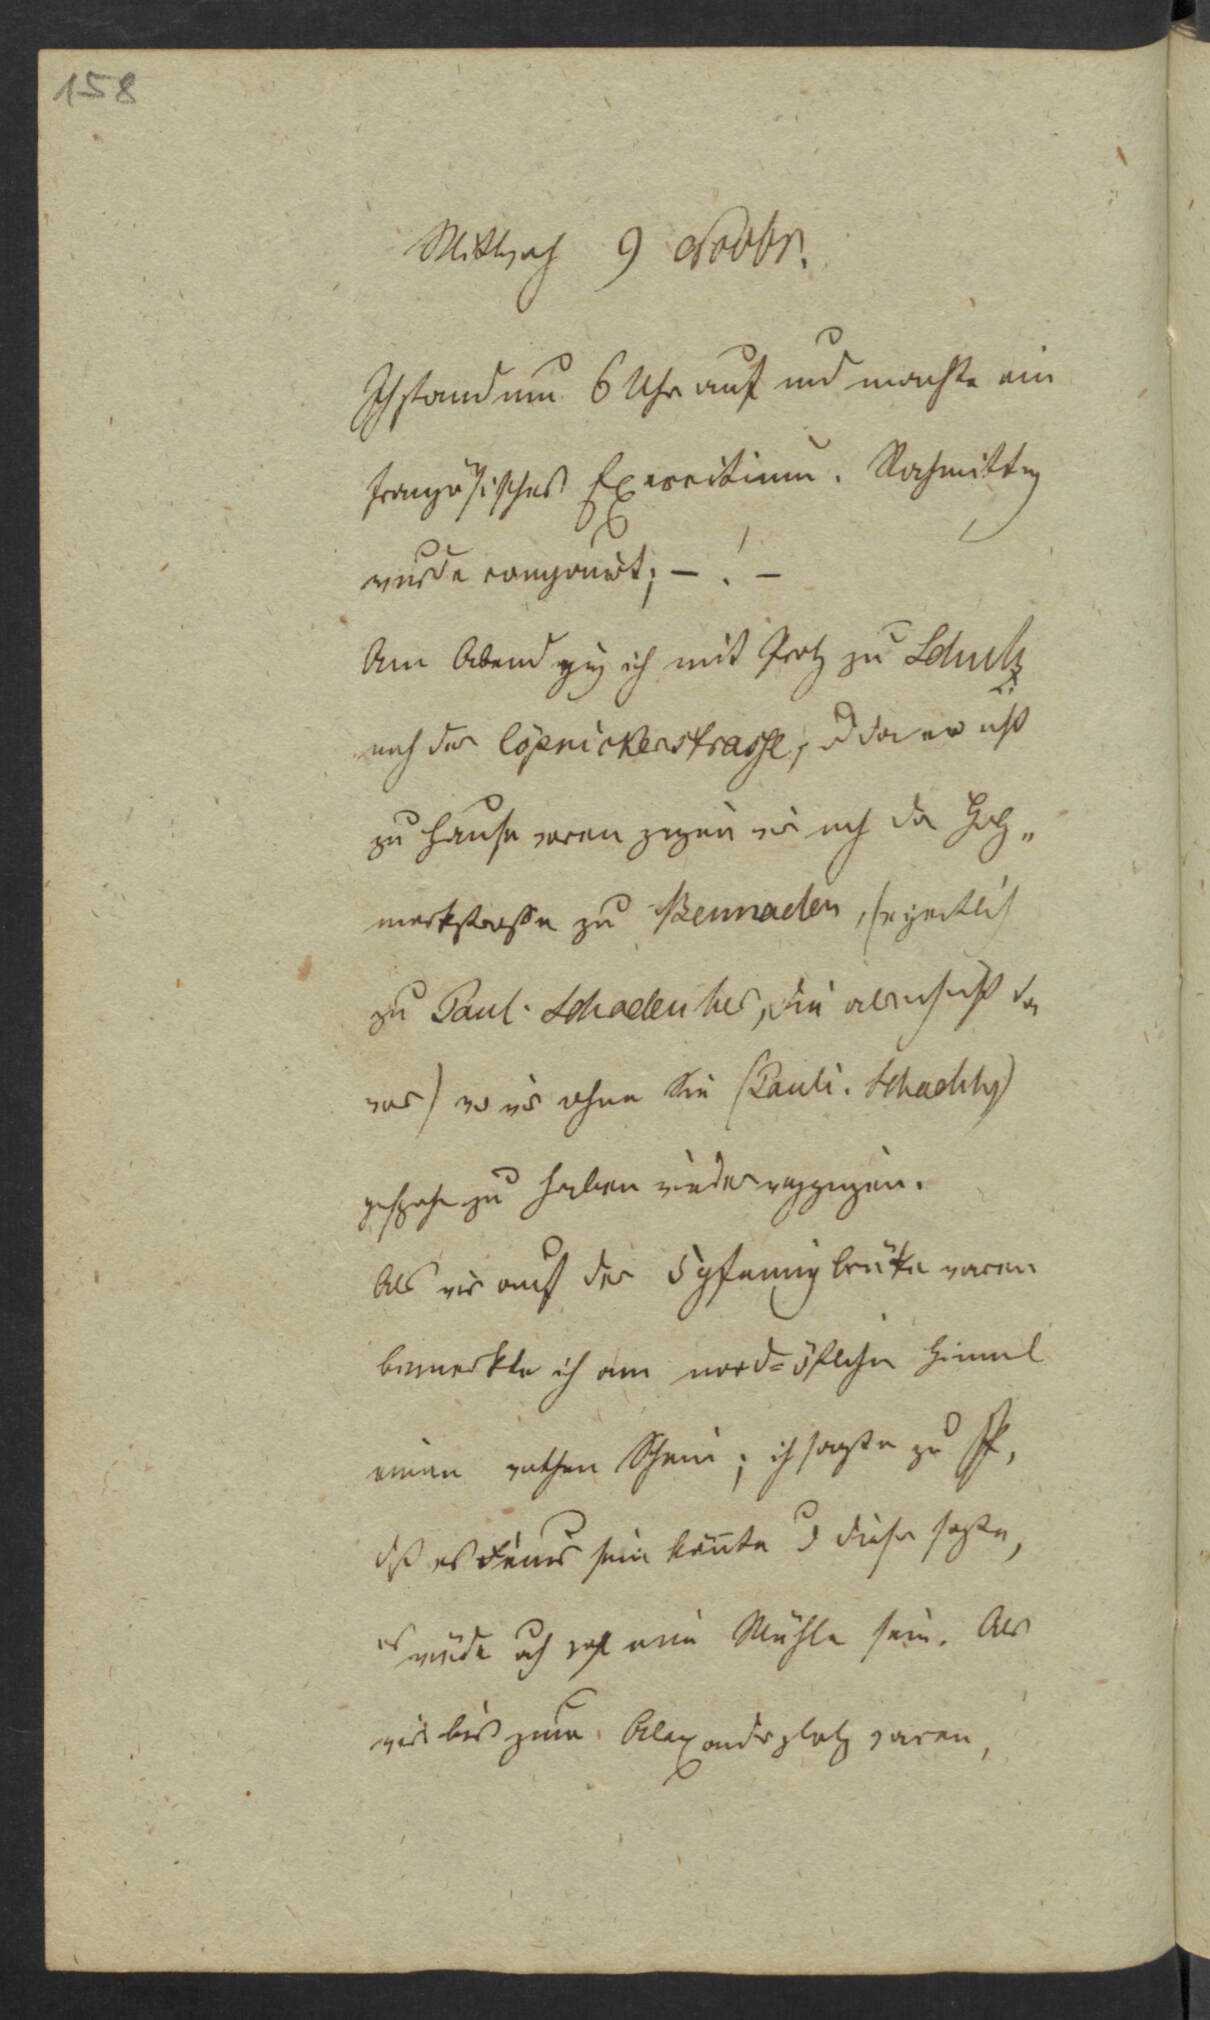 158
Mittwoch 9 Novbr.
Ich stand um 6 Uhr auf und machte ein
französisches Exercitium. Nachmittag
wurde componirt; — ! —
Am Abend ging ich mit Pertz zu Schulz
nach der Cöpnickerstrasse, u da er nicht
zu Hause waren gingen wir nach der Holz„
marktstrasse zu Bennaden, (eigentlich
zu Paul. Schadenber, die aber nicht da
war) wo wir ohne Sie (Pauli.
gesprochn zu haben wieder weggingen.
Als wir auf der 5pfennig brüke waren
bemerkte ich am nord=östlichen Himmel
einen rothen Schein; ich sagte zu P,
dß es Feuer sein könnte u dieser sagte,
es würde auch wohl eine Mühle sein. Als
wir bis zum Alexanderplatz waren,